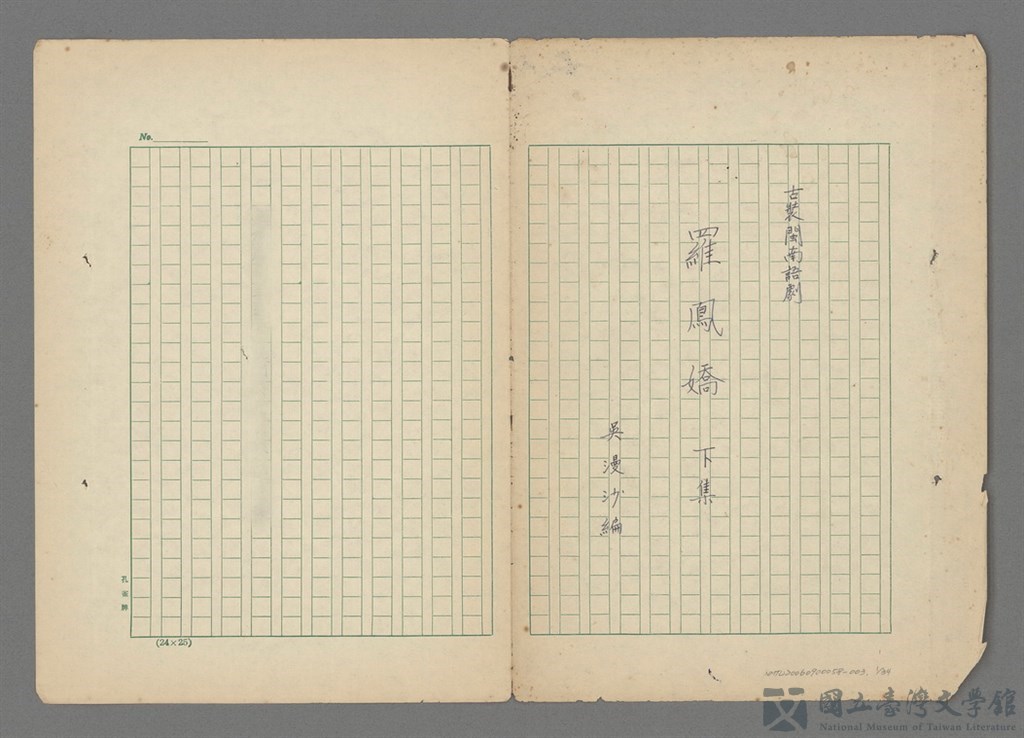 古裝閩南語劇
羅鳳嬌 下集
吳漫沙編
No.
孔雀牌
(24×25)
國立臺灣文學館
National Museum of Taiwan Literature